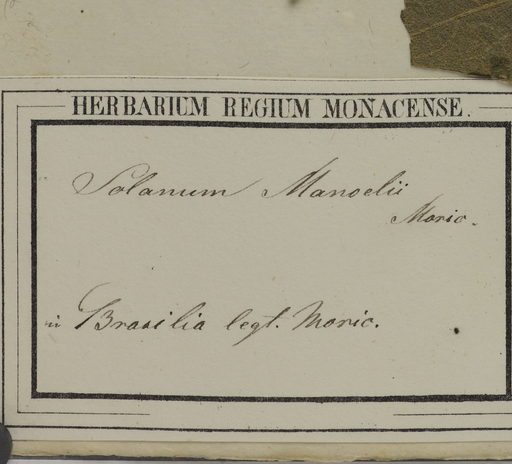 HERBARIUM REGIUM MONACENSE.
Solanum Manoelii
Moric.
in Brasilia legt. Moric.